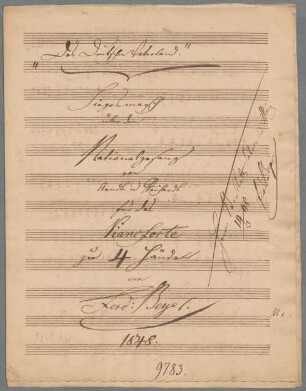 "Des Deutschen Vaterland."
Siegesmarsch
über den
Nationalgesang
von
Arndt u. Reichardt
für das
Piano Forte
zu 4 Händen
von
Ferd: Beyer.
1848.
9783.